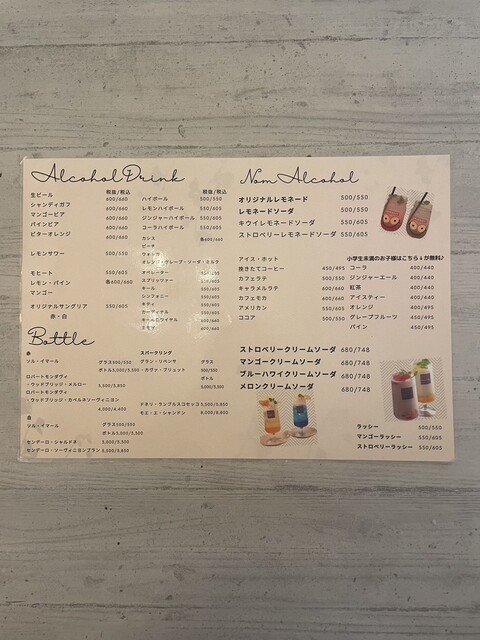 Alcohol Drink
税抜/税込
生ビール 600/660
シャンディガフ 600/660
マンゴービア 600/660
パインビア 600/660
ビターオレンジ 600/660
レモンサワー 500/550
モヒート 550/605
レモン・パイン 各600/660
マンゴー
オリジナルサングリア 550/605
赤・白
税抜/税込
ハイボール 500/550
レモンハイボール 550/605
ジンジャーハイボール 550/605
コーラハイボール 550/605
カシス 各600/660
ピーチ
ウォッカ
オレンジ・グレープ・ソーダ・ミルク
オペレーター
スプリッツァー
キール
シンフォニー
キティ
カーディナル
キールロワイヤル
ミモザ
Bottle
赤
ソル・イマール グラス500/550
ボトル3,000/3,300
ロバートモンダヴィ
・ウッドブリッジ・メルロー 3,500/3,850
ロバートモンダヴィ
・ウッドブリッジ・カベルネソーヴィニヨン
4,000/4,400
白
ソル・イマール グラス500/550
ボトル3,000/3,300
センデーロ・シャルドネ 3,000/3,300
センデーロ・ソーヴィニヨンブラン 3,500/3,850
スパークリング
グラン・リベンサ グラス
・カヴァ・ブリュット 500/550
ボトル
3,000/3,300
ドネリ・ランブルスコセッコ 3,500/3,850
モエ・エ・シャンドン 8,000/8,800
Non Alcohol
オリジナルレモネード 500/550
レモネードソーダ 500/550
キウイレモネードソーダ 550/605
ストロベリーレモネードソーダ 550/605
アイス・ホット
挽きたてコーヒー 450/495
カフェラテ 500/550
キャラメルラテ 600/660
カフェモカ 600/660
アメリカン 550/605
ココア 500/550
小学生未満のお子様はこちら↓が無料♪
コーラ 400/440
ジンジャーエール 400/440
紅茶 400/440
アイスティー 400/440
オレンジ 450/495
グレープフルーツ 450/495
パイン 450/495
ストロベリークリームソーダ 680/748
マンゴークリームソーダ 680/748
ブルーハワイクリームソーダ 680/748
メロンクリームソーダ 680/748
ラッシー 500/550
マンゴーラッシー 550/605
ストロベリーラッシー 550/605